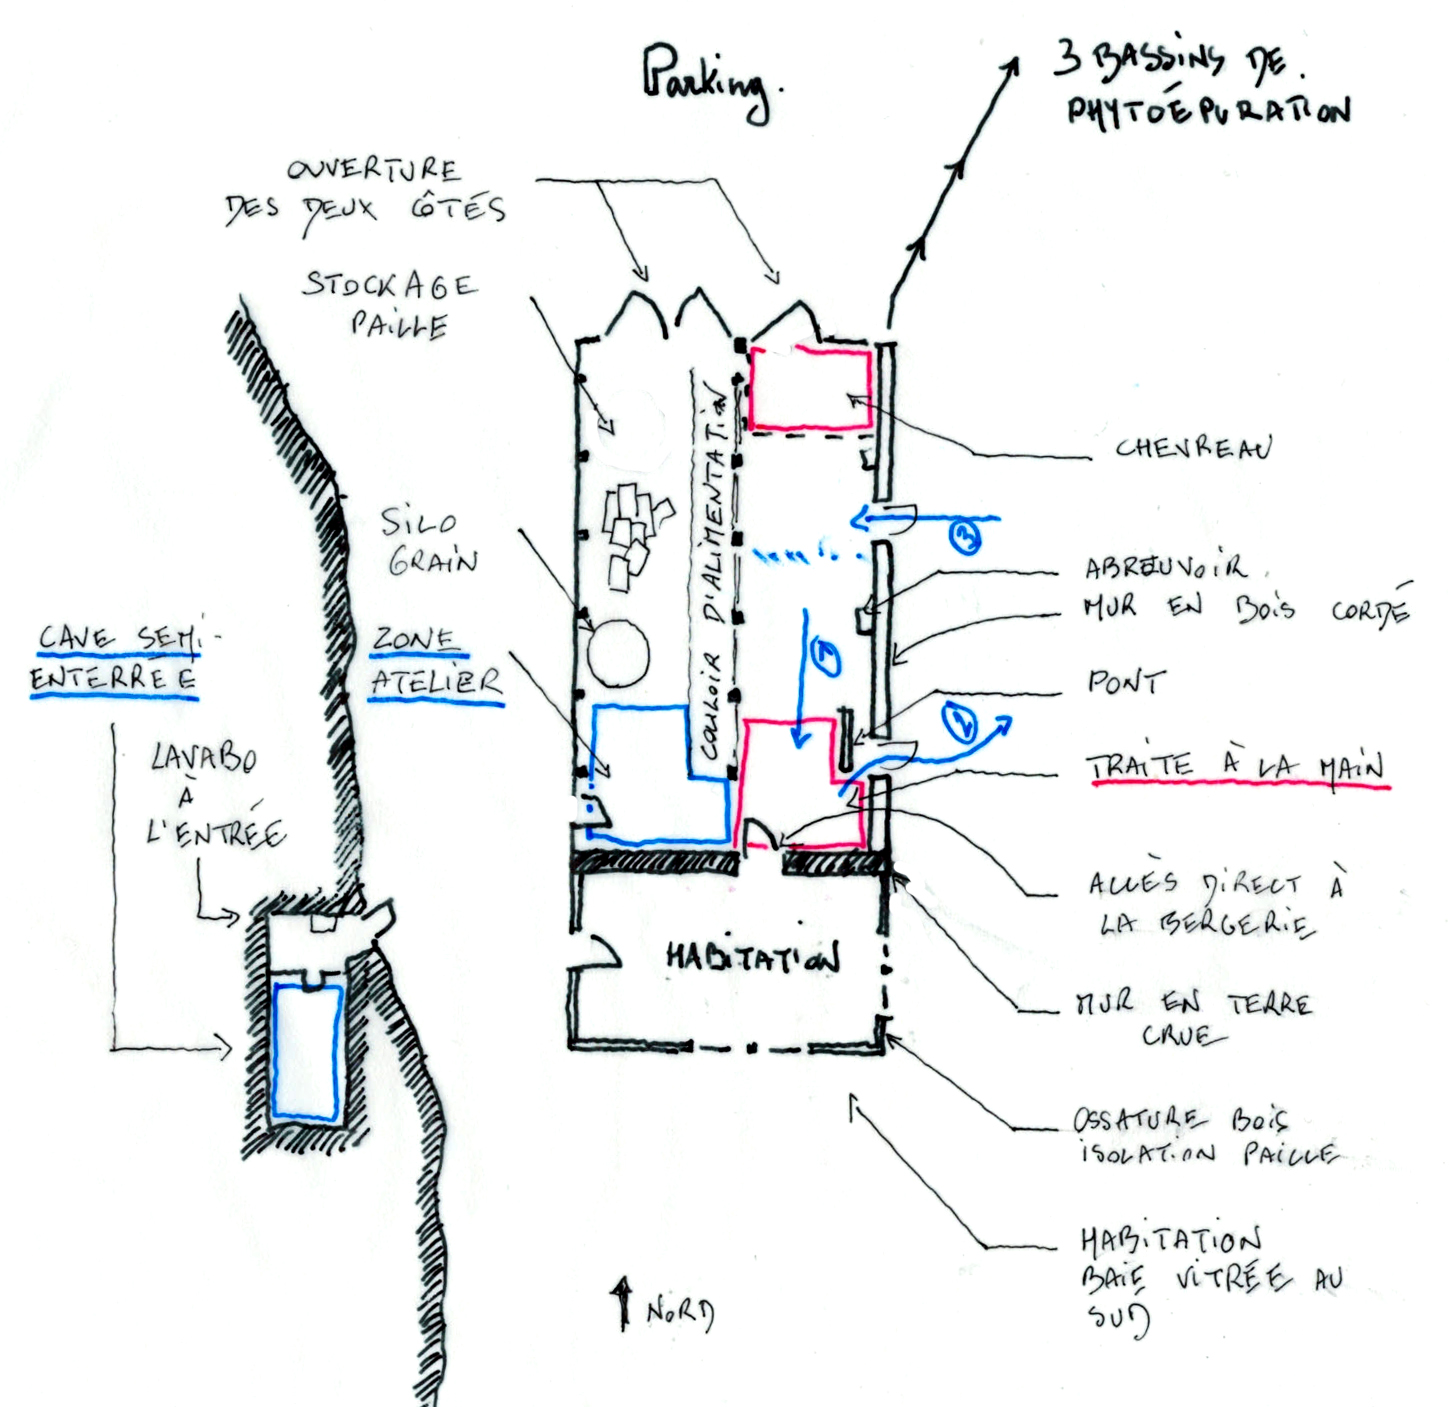 Parking.
3 BASSINS DE.
PHYTOÉPURATION
OUVERTURE
DES DEUX CÔTÉS
STOCKAGE
PAILLE
CHEVREAU
SILO
GRAIN
COULOIR D'ALIMENTATION
3
ABREUVOIR.
MUR EN BOIS CORDÉ
CAVE SEMI-
ENTERRÉE
ZONE
ATELIER
1
PONT
2
LAVABO
À
L'ENTRÉE
TRAITE À LA MAIN
ACCÈS DIRECT À
LA BERGERIE
HABITATION
MUR EN TERRE
CRUE
OSSATURE BOIS
ISOLATION PAILLE
HABITATION
BAIE VITRÉE AU
SUD
NORD